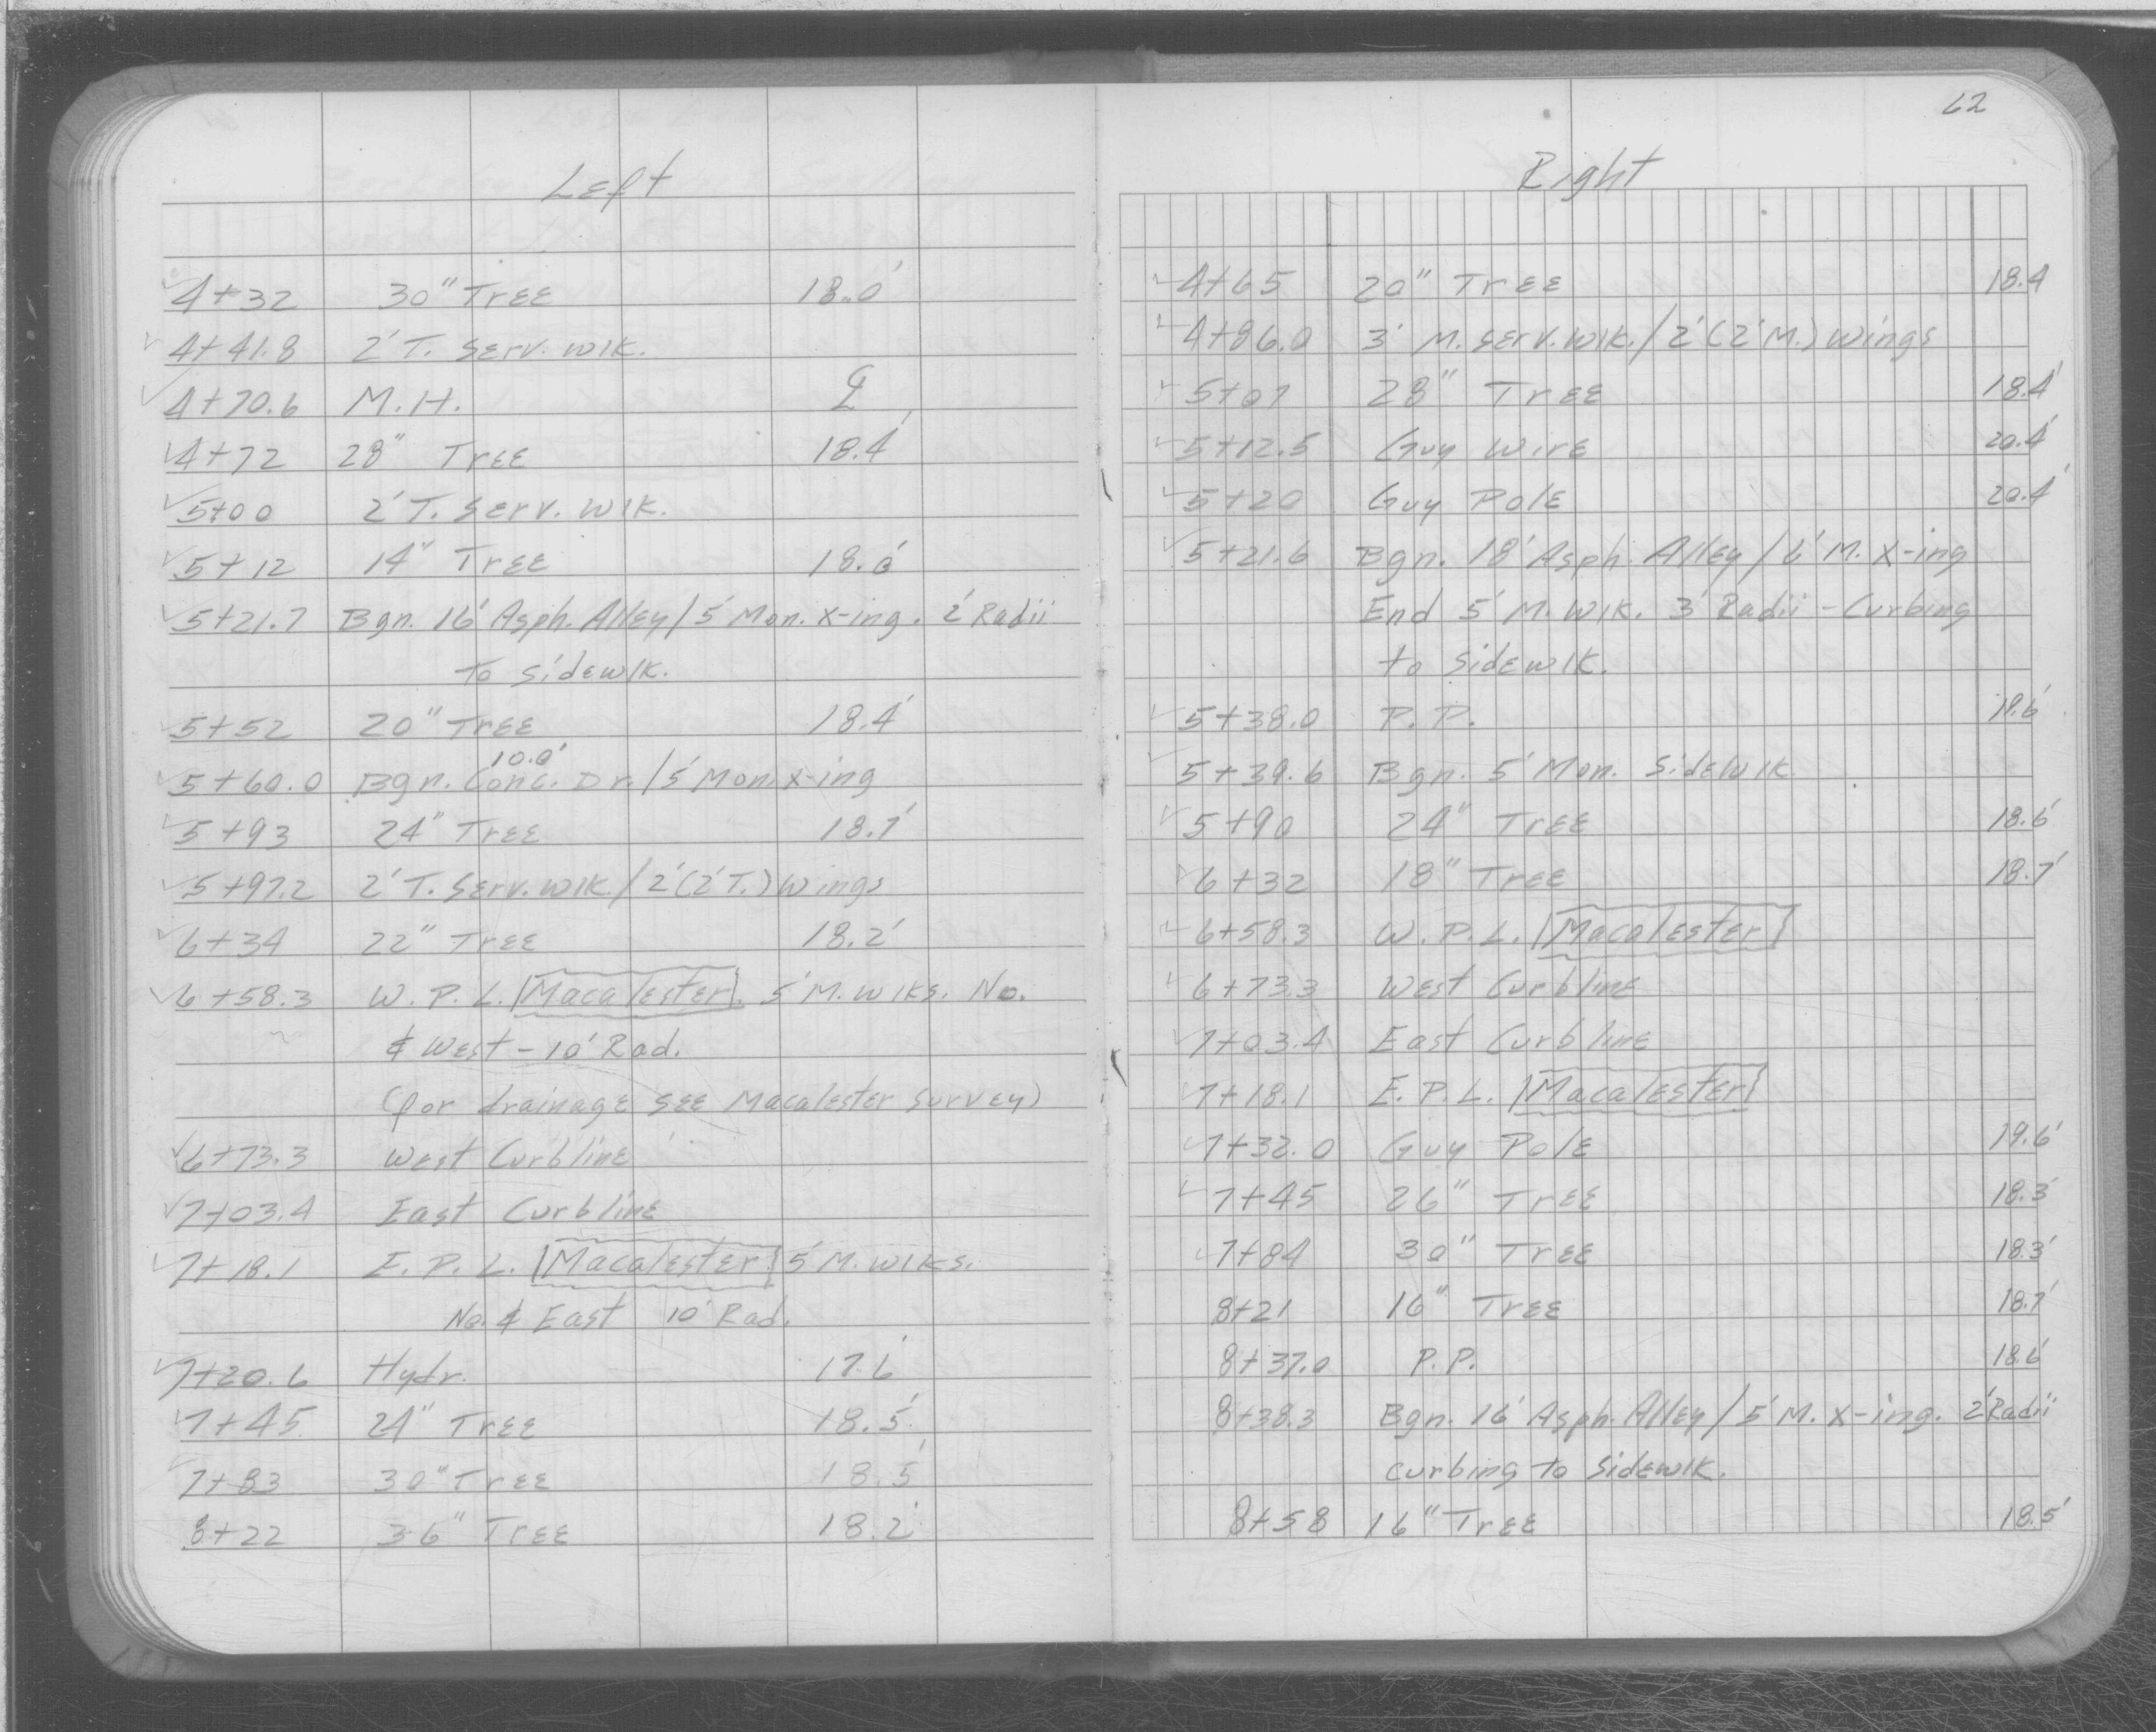 Left
4+32 30" Tree 18.0'
4+41.8 2' T. Serv. Wlk.
4+70.6 M.H. ℄
4+72 28" Tree 18.4'
5+00 2' T. Serv. Wlk.
5+12 14" Tree 18.0'
5+21.7 Bgn. 16' Asph. Alley/5' Mon. X-ing. 2' Radii
to sidewlk.
5+52 20" Tree 18.4'
10.0'
5+60.0 Bgn. Conc. Dr./5' Mon. X-ing
5+93 24" Tree 18.7'
5+97.2 2' T. Serv. Wlk./2' (2' T.) Wings
6+34 22" Tree 18.2'
6+58.3 W.P.L. Macalester. 5' M. Wlks. No.
& West - 10' Rad.
(for drainage see Macalester Survey)
6+73.3 West Curbline
7+03.4 East Curbline
7+18.1 E.P.L. Macalester 5' M. Wlks.
No. & East 10' Rad.
7+20.6 Hydr. 17.6'
7+45 24" Tree 18.5'
7+83 30" Tree 18.5'
8+22 36" Tree 18.2'
62
Right
4+65 20" Tree 18.4
4+86.0 3' M. Serv. Wlk./2' (2' M.) Wings
5+07 28" Tree 18.4'
5+12.5 Guy Wire 20.4'
5+20 Guy Pole 20.4'
5+21.6 Bgn. 18' Asph. Alley/6' M. X-ing
End 5' M. Wlk. 3' Radii - Curbing
to Sidewlk.
5+38.0 P.P.
5+39.6 Bgn. 5' Mon. Sidewlk
5+90 24" Tree 18.6'
6+32 18" Tree 18.7'
6+58.3 W.P.L. Macalester
6+73.3 West Curbline
7+03.4 East Curbline
7+18.1 E.P.L. Macalester
7+32.0 Guy Pole 19.6'
7+45 26" Tree 18.3'
7+84 30" Tree 18.3'
8+21 16" Tree 18.7'
8+37.0 P.P. 18.6'
8+38.3 Bgn. 16' Asph. Alley/5' M. X-ing. 2' Radii
curbing to Sidewlk.
8+58 16" Tree 18.5'